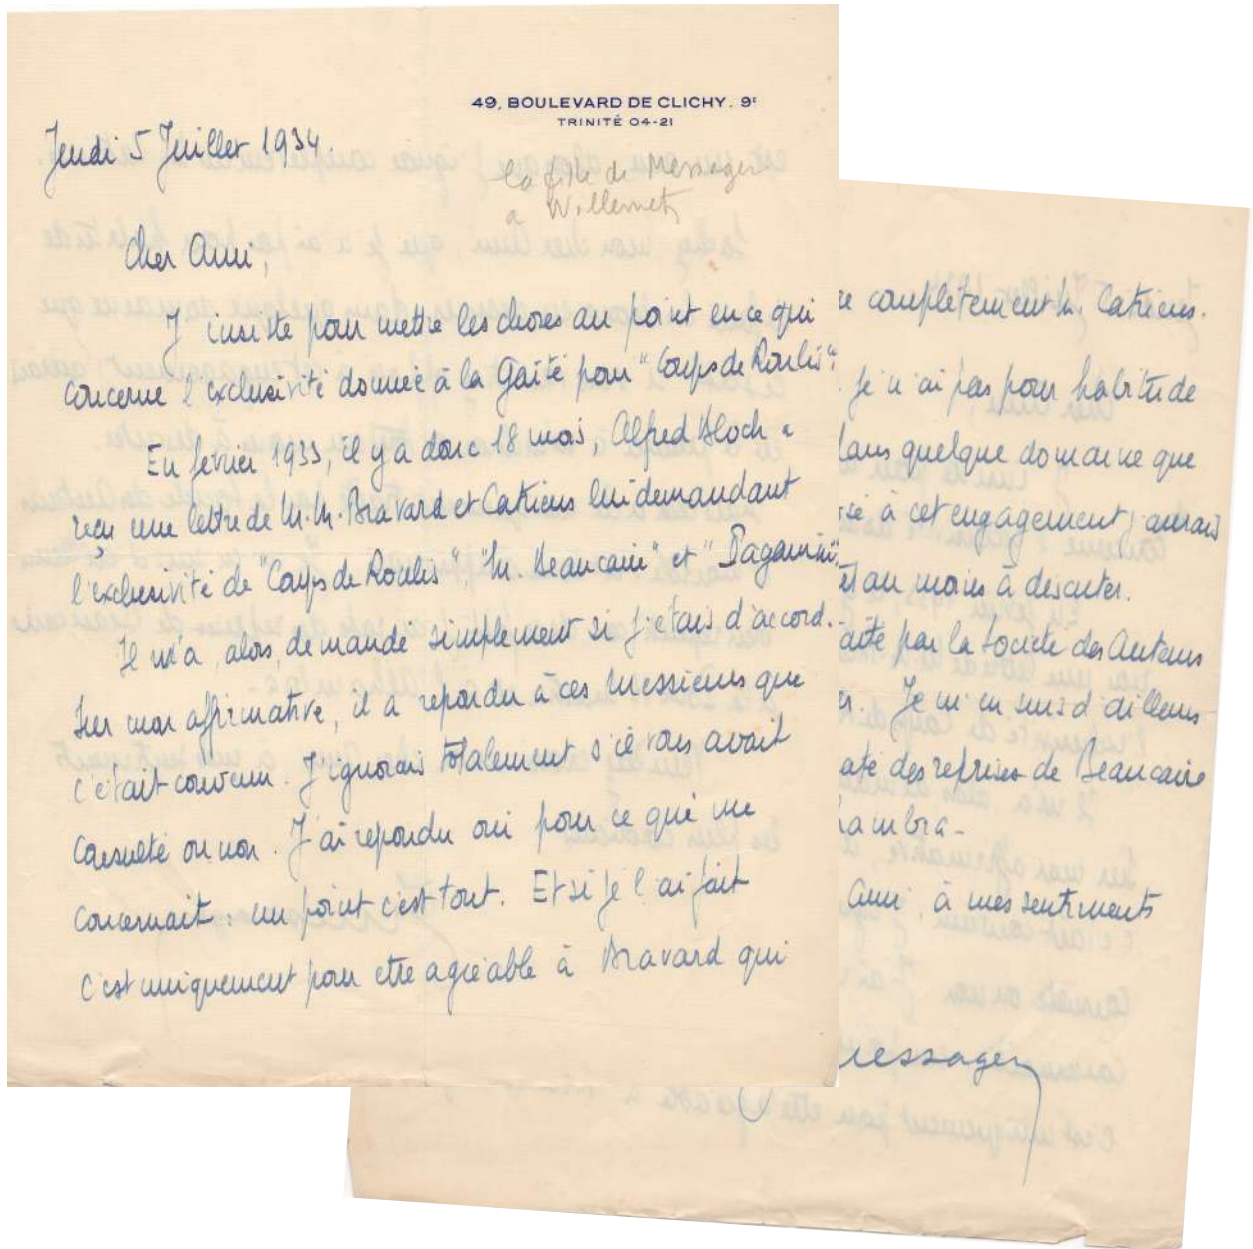 49, BOULEVARD DE CLICHY. 9e
TRINITÉ 04-21
Jeudi 5 Juillet 1934.
la fille de Messager
a Willemetz
Cher Ami,
J'insiste pour mettre les choses au point en ce qui
concerne l'exclusivité donnée à la Gaîté pour "Coups de Roulis".
En février 1933, il y a donc 18 mois, Alfred Bloch a
reçu une lettre de M.M. Bravard et Catriens lui demandant
l'exclusivité de "Coups de Roulis" "M. Beaucaire" et "Paganini".
Il m'a, alors, demandé simplement si j'étais d'accord.
Sur mon affirmative, il a repondu à ces Messieurs que
c'était convenu. J'ignorais totalement s'il vous avait
consulté ou non. J'ai repondu oui pour ce qui me
concernait : un point c'est tout. Et si je l'ai fait
c'est uniquement pour etre agréable à Bravard qui
complètement M. Catriens.
je n'ai pas pour habitude
dans quelque domaine que
à cet engagement j'aurais
au moins à discuter.
par la Société des Auteurs
Je m'en suis d'ailleurs
des reprises de Beaucaire
ami à mes sentiments
Messager